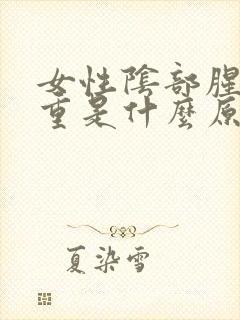 女性陰部腥
重是什麼原
夏染雪